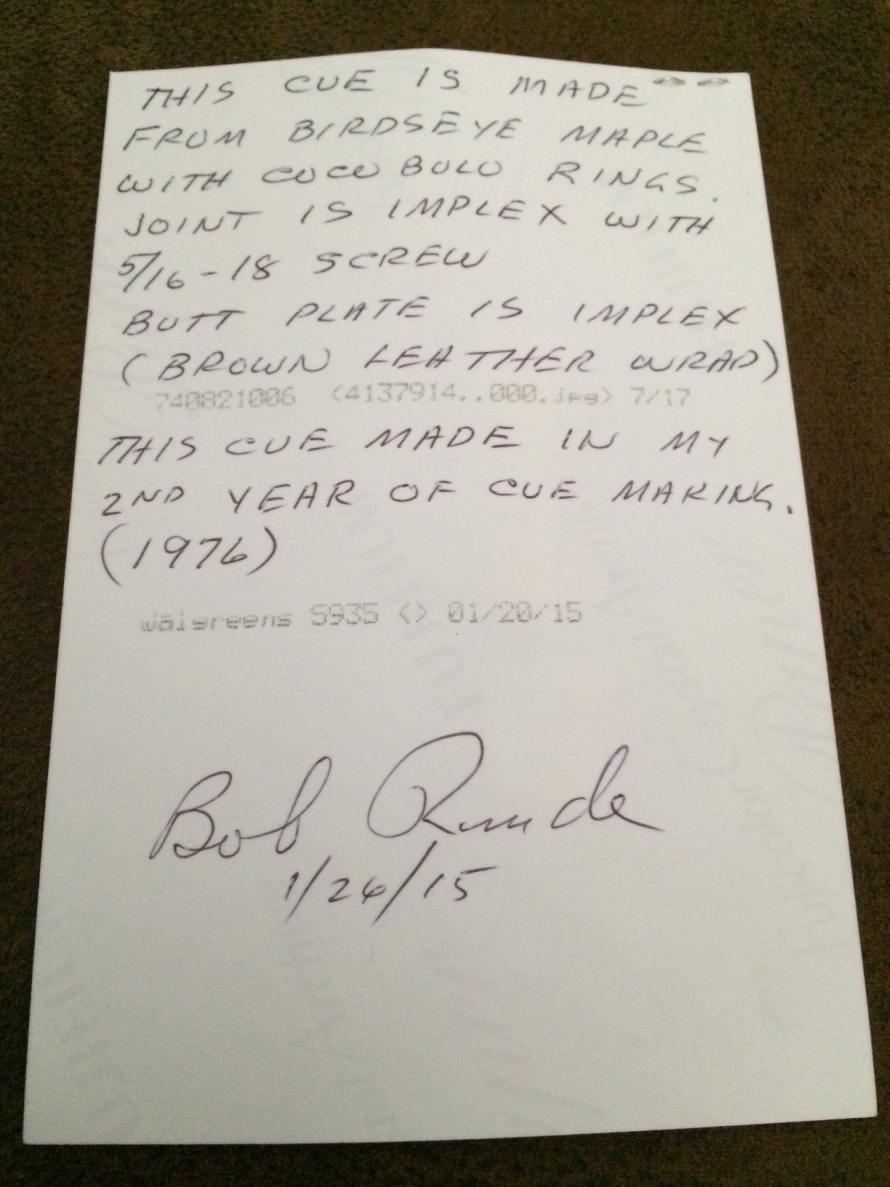 THIS CUE IS MADE
FROM BIRDSEYE MAPLE
WITH COCOBOLO RINGS.
JOINT IS IMPLEX WITH
5/16-18 SCREW
BUTT PLATE IS IMPLEX
(BROWN LEATHER WRAP)
740821006 <4137914..000.jpg> 7/17
THIS CUE MADE IN MY
2ND YEAR OF CUE MAKING.
(1976)
Walgreens S935 <> 01/20/15
Bob Runde
1/26/15